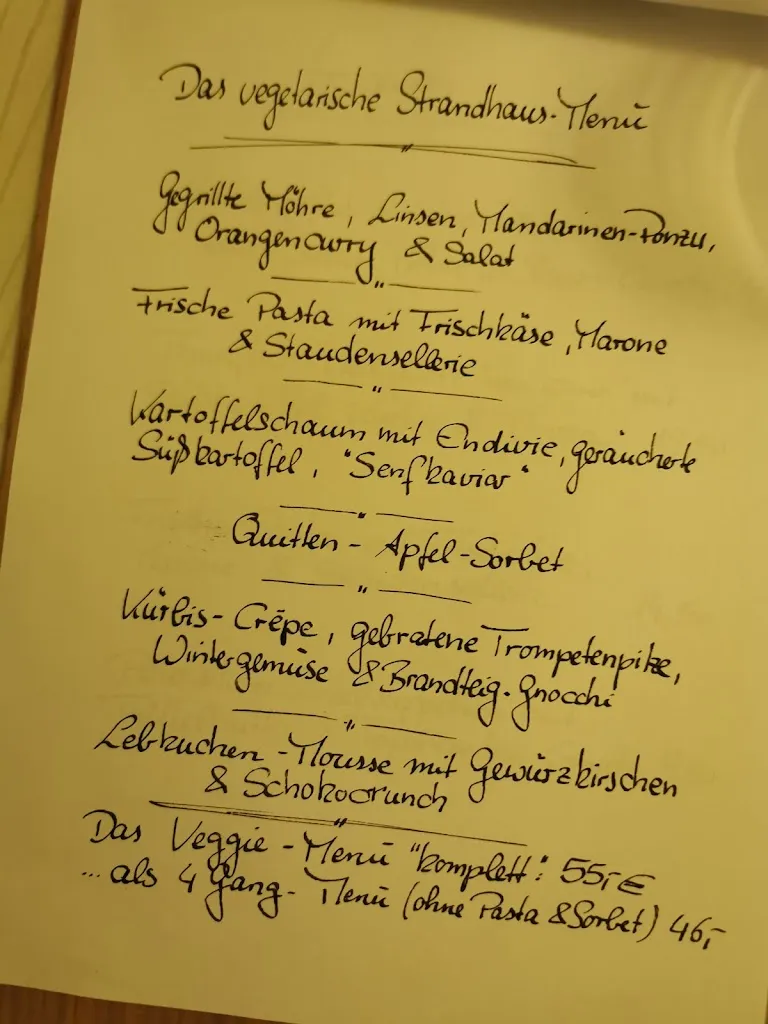 Das vegetarische Strandhaus-Menü
Gegrillte Möhre, Linsen, Mandarinen-Ponzu,
Orangencurry & Salat
Frische Pasta mit Frischkäse, Marone
& Staudensellerie
Kartoffelschaum mit Endivie, geräucherte
Süßkartoffel, "Senfkaviar"
Quitten-Apfel-Sorbet
Kürbis-Crêpe, gebratene Trompetenpilze,
Wintergemüse & Brandteig-Gnocchi
Lebkuchen-Mousse mit Gewürzkirschen
& Schokocrunch
Das Veggie-Menü "komplett": 55,- €
...als 4 Gang-Menü (ohne Pasta & Sorbet) 46,-